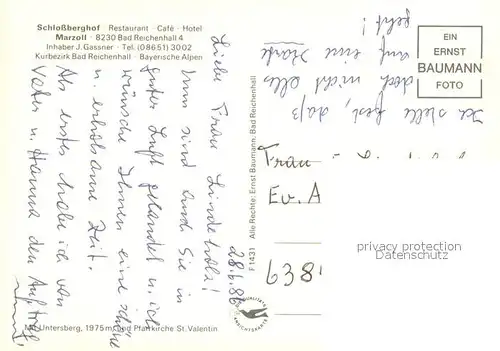 Schloßberghof · Restaurant · Café · Hotel
Marzoll · 8230 Bad Reichenhall 4
Inhaber J. Gassner · Tel. (08651) 3002
Kurbezirk Bad Reichenhall · Bayerische Alpen
28.6.86
Liebe Frau
Nun sind auch Sie in
guter Luft gelandet u. ich
wünsche Ihnen eine schöne
u. erholsame Zeit.
Als erstes habe ich von
Vater u. Hanna den Auftrag
Ich stelle fest, daß
doch nicht alles
auf eine Karte
geht!
EIN
ERNST
BAUMANN
FOTO
Frau
Ev. A
638
F 1431 Alle Rechte: Ernst Baumann, Bad Reichenhall
privacy protection
Datenschutz
QUALITÄTS
ANSICHTSKARTE
Mit Untersberg, 1975 m, und Pfarrkirche St. Valentin